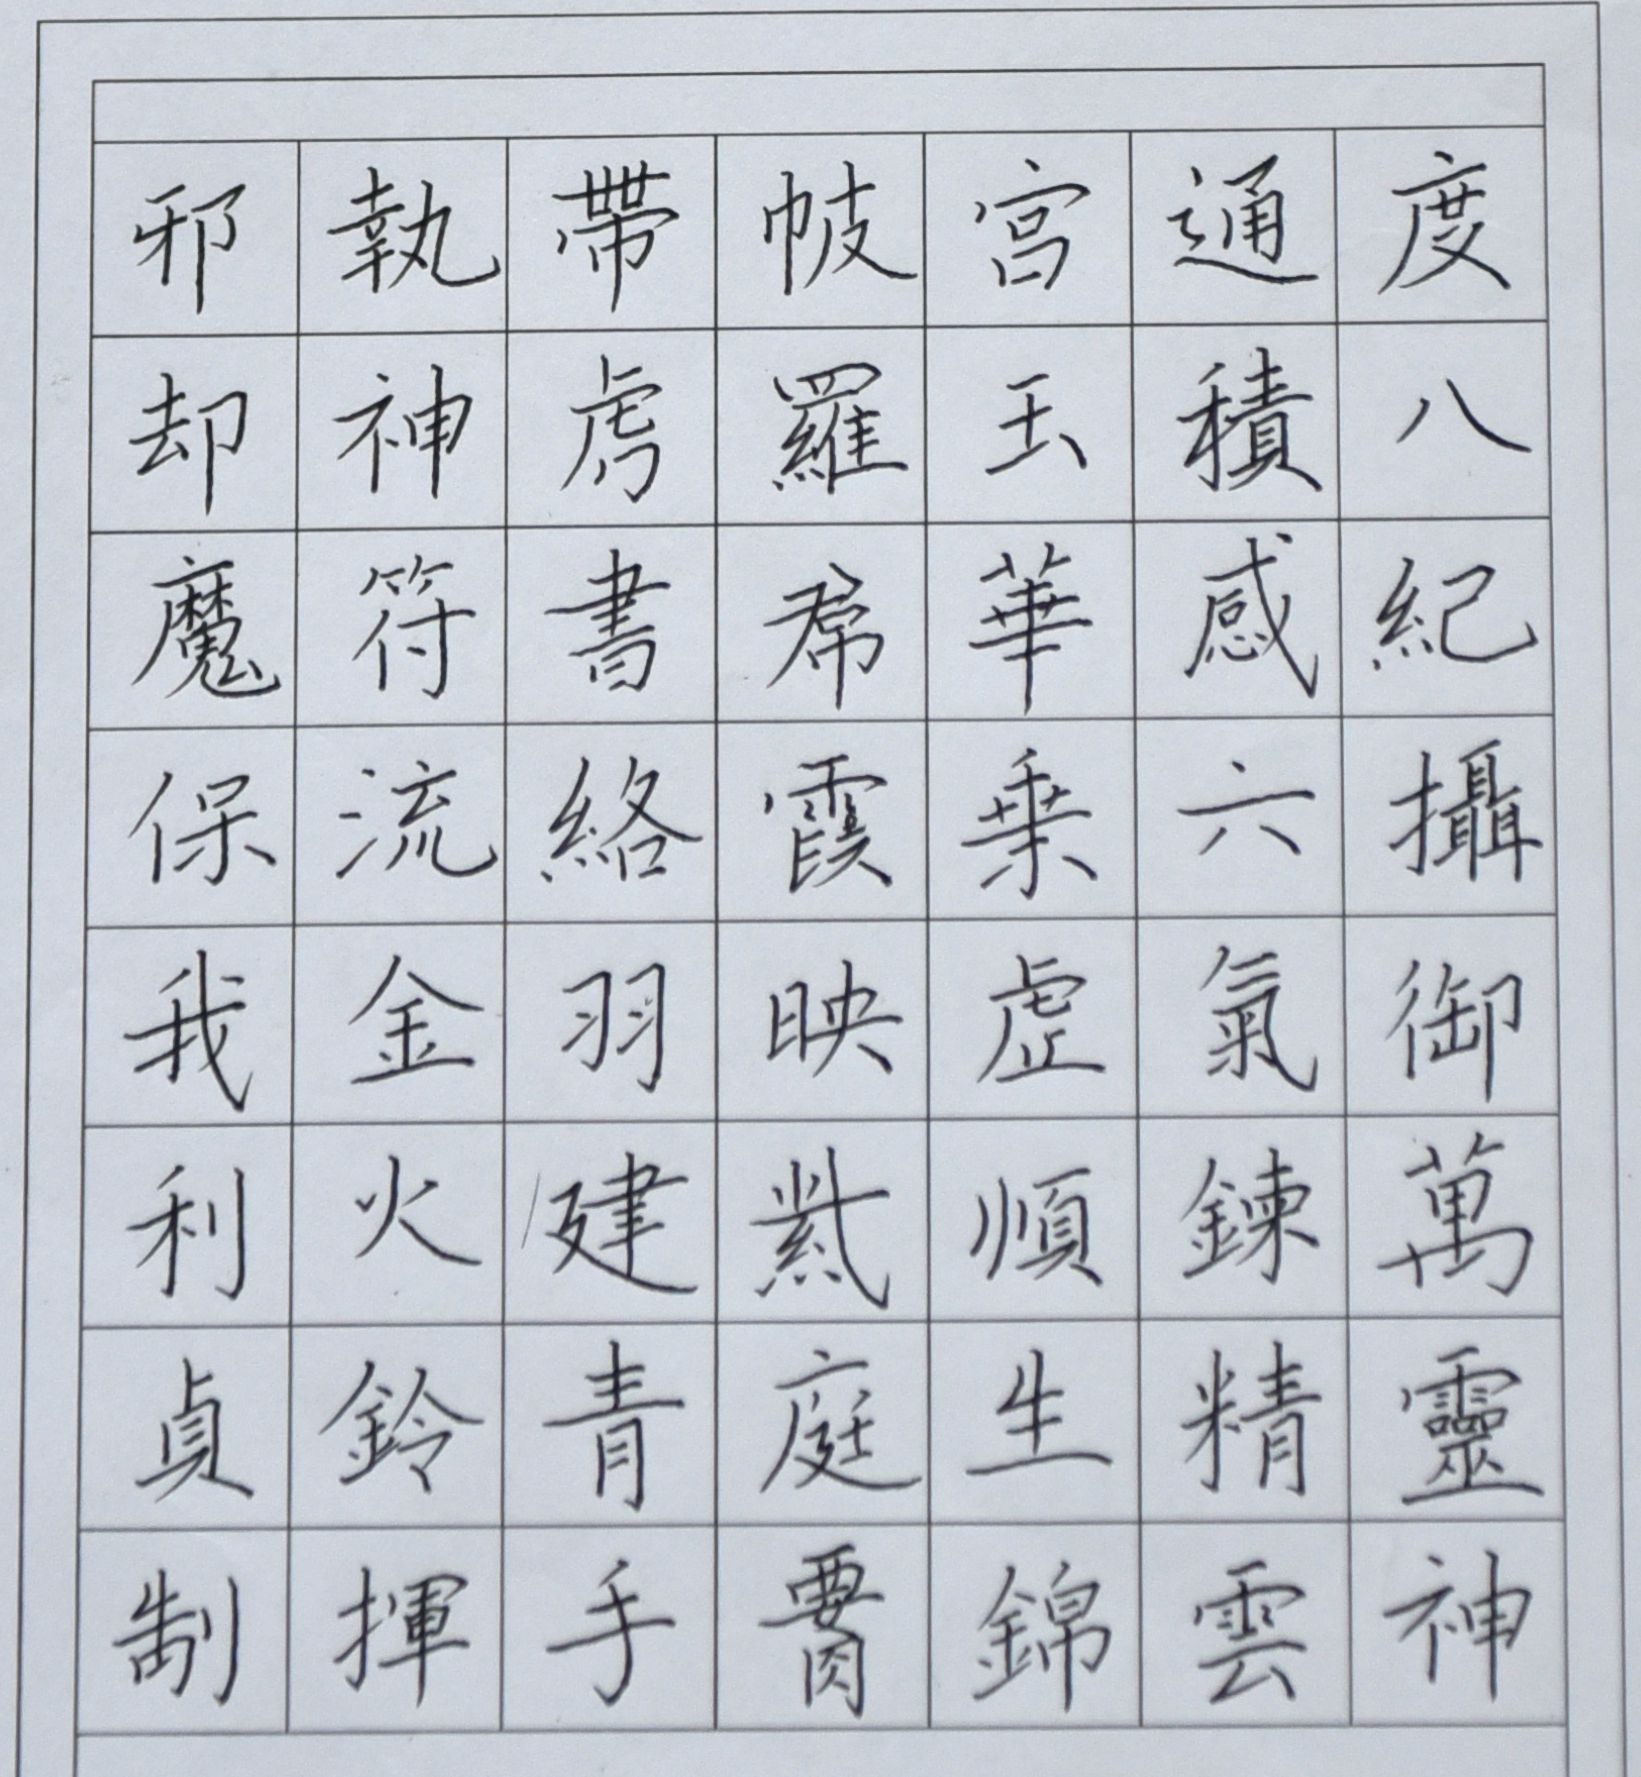 度八紀攝御萬靈神
通積感六氣鍊精雲
宫玉華乗虛順生錦
帔羅帬霞映紫庭腰
帶虎書絡羽建青手
執神符流金火鈴揮
邪却魔保我利貞制